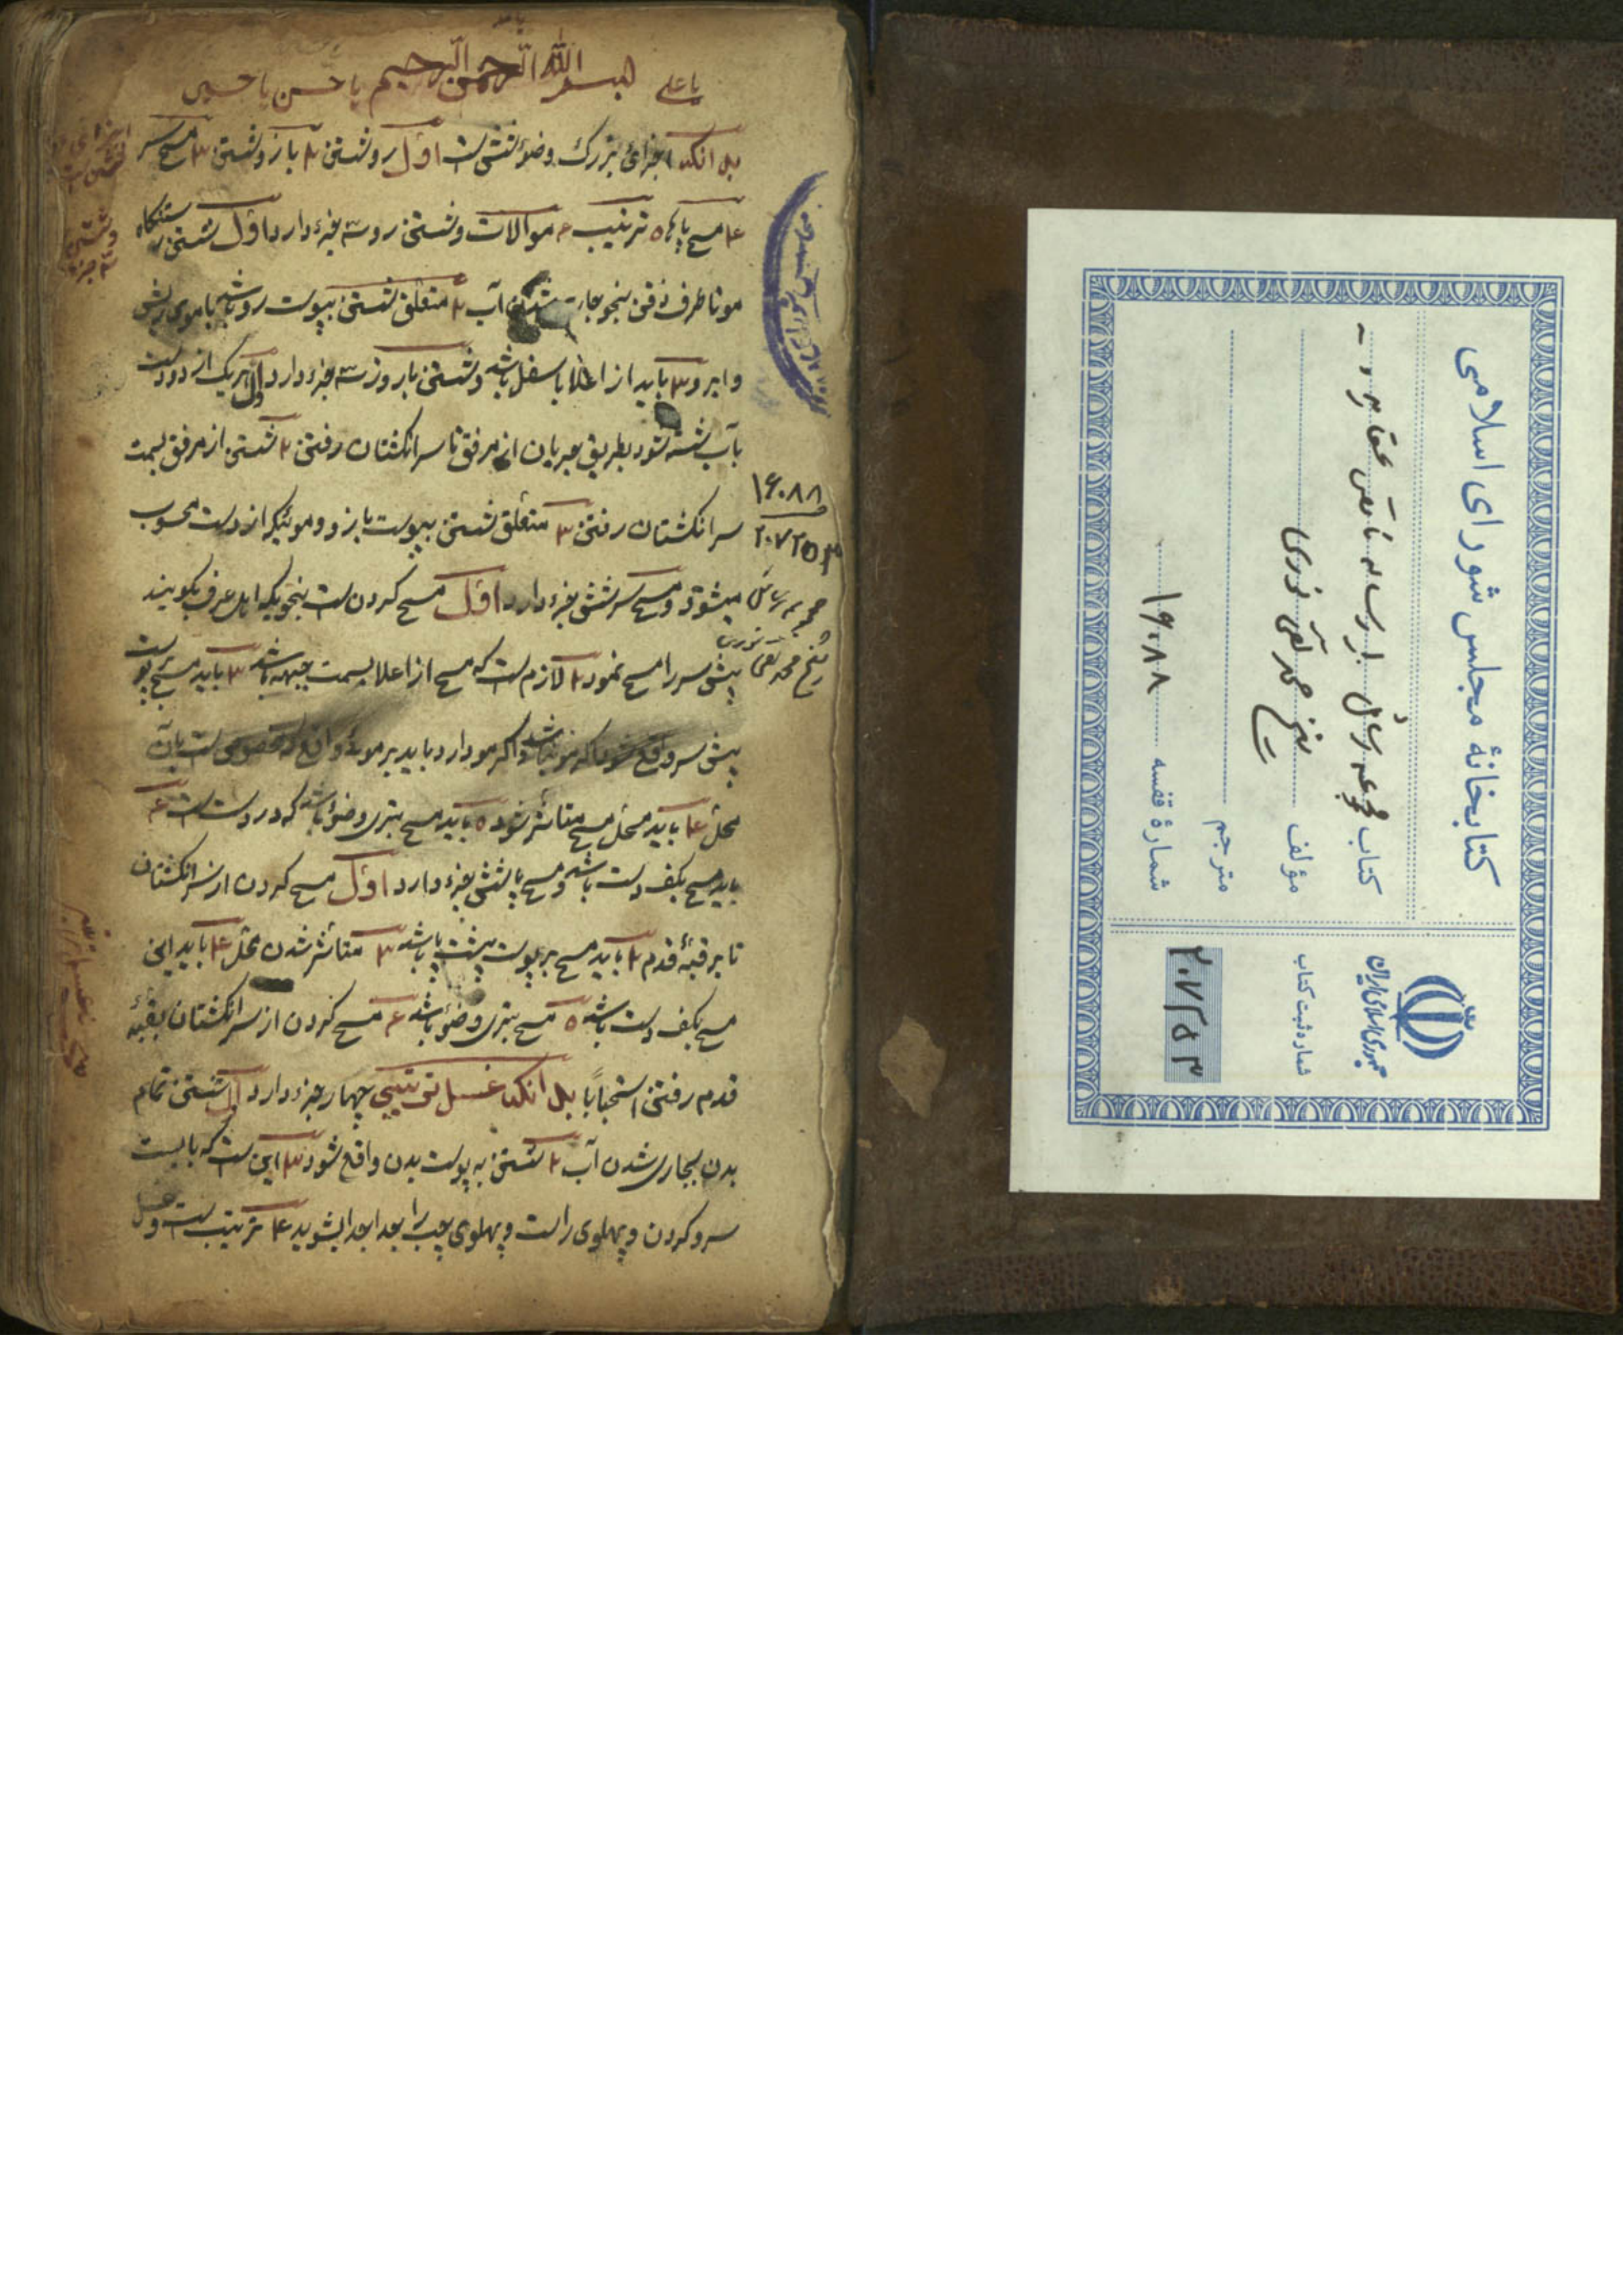 یا علی بسم الله الرحمن الرحیم یا حسن یا حسین
بدانکه اجزای بزرک وضوء شش است اول رو شستن ۲ بازو شستن ۳ مسح سر
۴ مسح پاها ۵ ترتیب ۶ موالات و شستن رو سه جزء دارد اول شستن رستنکاه
مو تا طرف ذقن بنحو جاری شدن آب ۲ متعلق شستن بپوست رو باشد یا موی ریش
و ابرو ۳ باید از اعلا باسفل باشد و شستن بازو نیز سه جزء دارد اول هر یک از دو دست
بآب شسته شود بطریق جریان از مرفق تا سر انکشتان رفتن ۲ شستن از مرفق بسمت
سر انکشتان رفتن ۳ متعلق شستن بپوست بازو و موئیکه از دست محسوب
میشود و مسح سر شش جزء دارد اول مسح کردن است بنحویکه اهل عرف بکویند
پیش سر را مسح نمود ۲ لازم است که مسح از اعلا بسمت جبهه باشد ۳ باید مسح بر پوست
پیش سر واقع شود اکر مو نباشد و اکر مو دارد باید بر موئی واقع که مخصوص است بآن
محل ۴ باید محل مسح متاثر شود ۵ باید مسح بتری وضوء باشد که در دست است ۶
باید مسح بکف دست باشد و مسح پا شش جزء دارد اول مسح کردن از سر انکشتان
تا بر قبهٔ قدم ۲ باید مسح بر پوست پشت پا باشد ۳ متاثر شدن محل ۴ باید این
مسح بکف دست باشد ۵ مسح بتری وضوء باشد ۶ مسح کردن از سر انکشتان بقبهٔ
قدم رفتن استحبابا بدانکه غسل ترتیبی چهار جزء دارد اول شستن تمام
بدن بجاری شدن آب ۲ شستن به پوست بدن واقع شود ۳ این است که بایست
سر و کردن و پهلوی راست و پهلوی چپ را جدا جدا بشوید ۴ ترتیب است و غسل
۱۶۰۸۸
۲۰۷۲۵۳
مجموعه رسائل
شیخ محمد تقی نوری
کتابخانهٔ مجلس شورای اسلامی
کتاب مجموعه رسائل
مؤلف شیخ محمد تقی نوری
مترجم
شمارهٔ قفسه ۱۶۰۸۸
جمهوری اسلامی ایران
شماره ثبت کتاب
۲۰۷۲۵۳